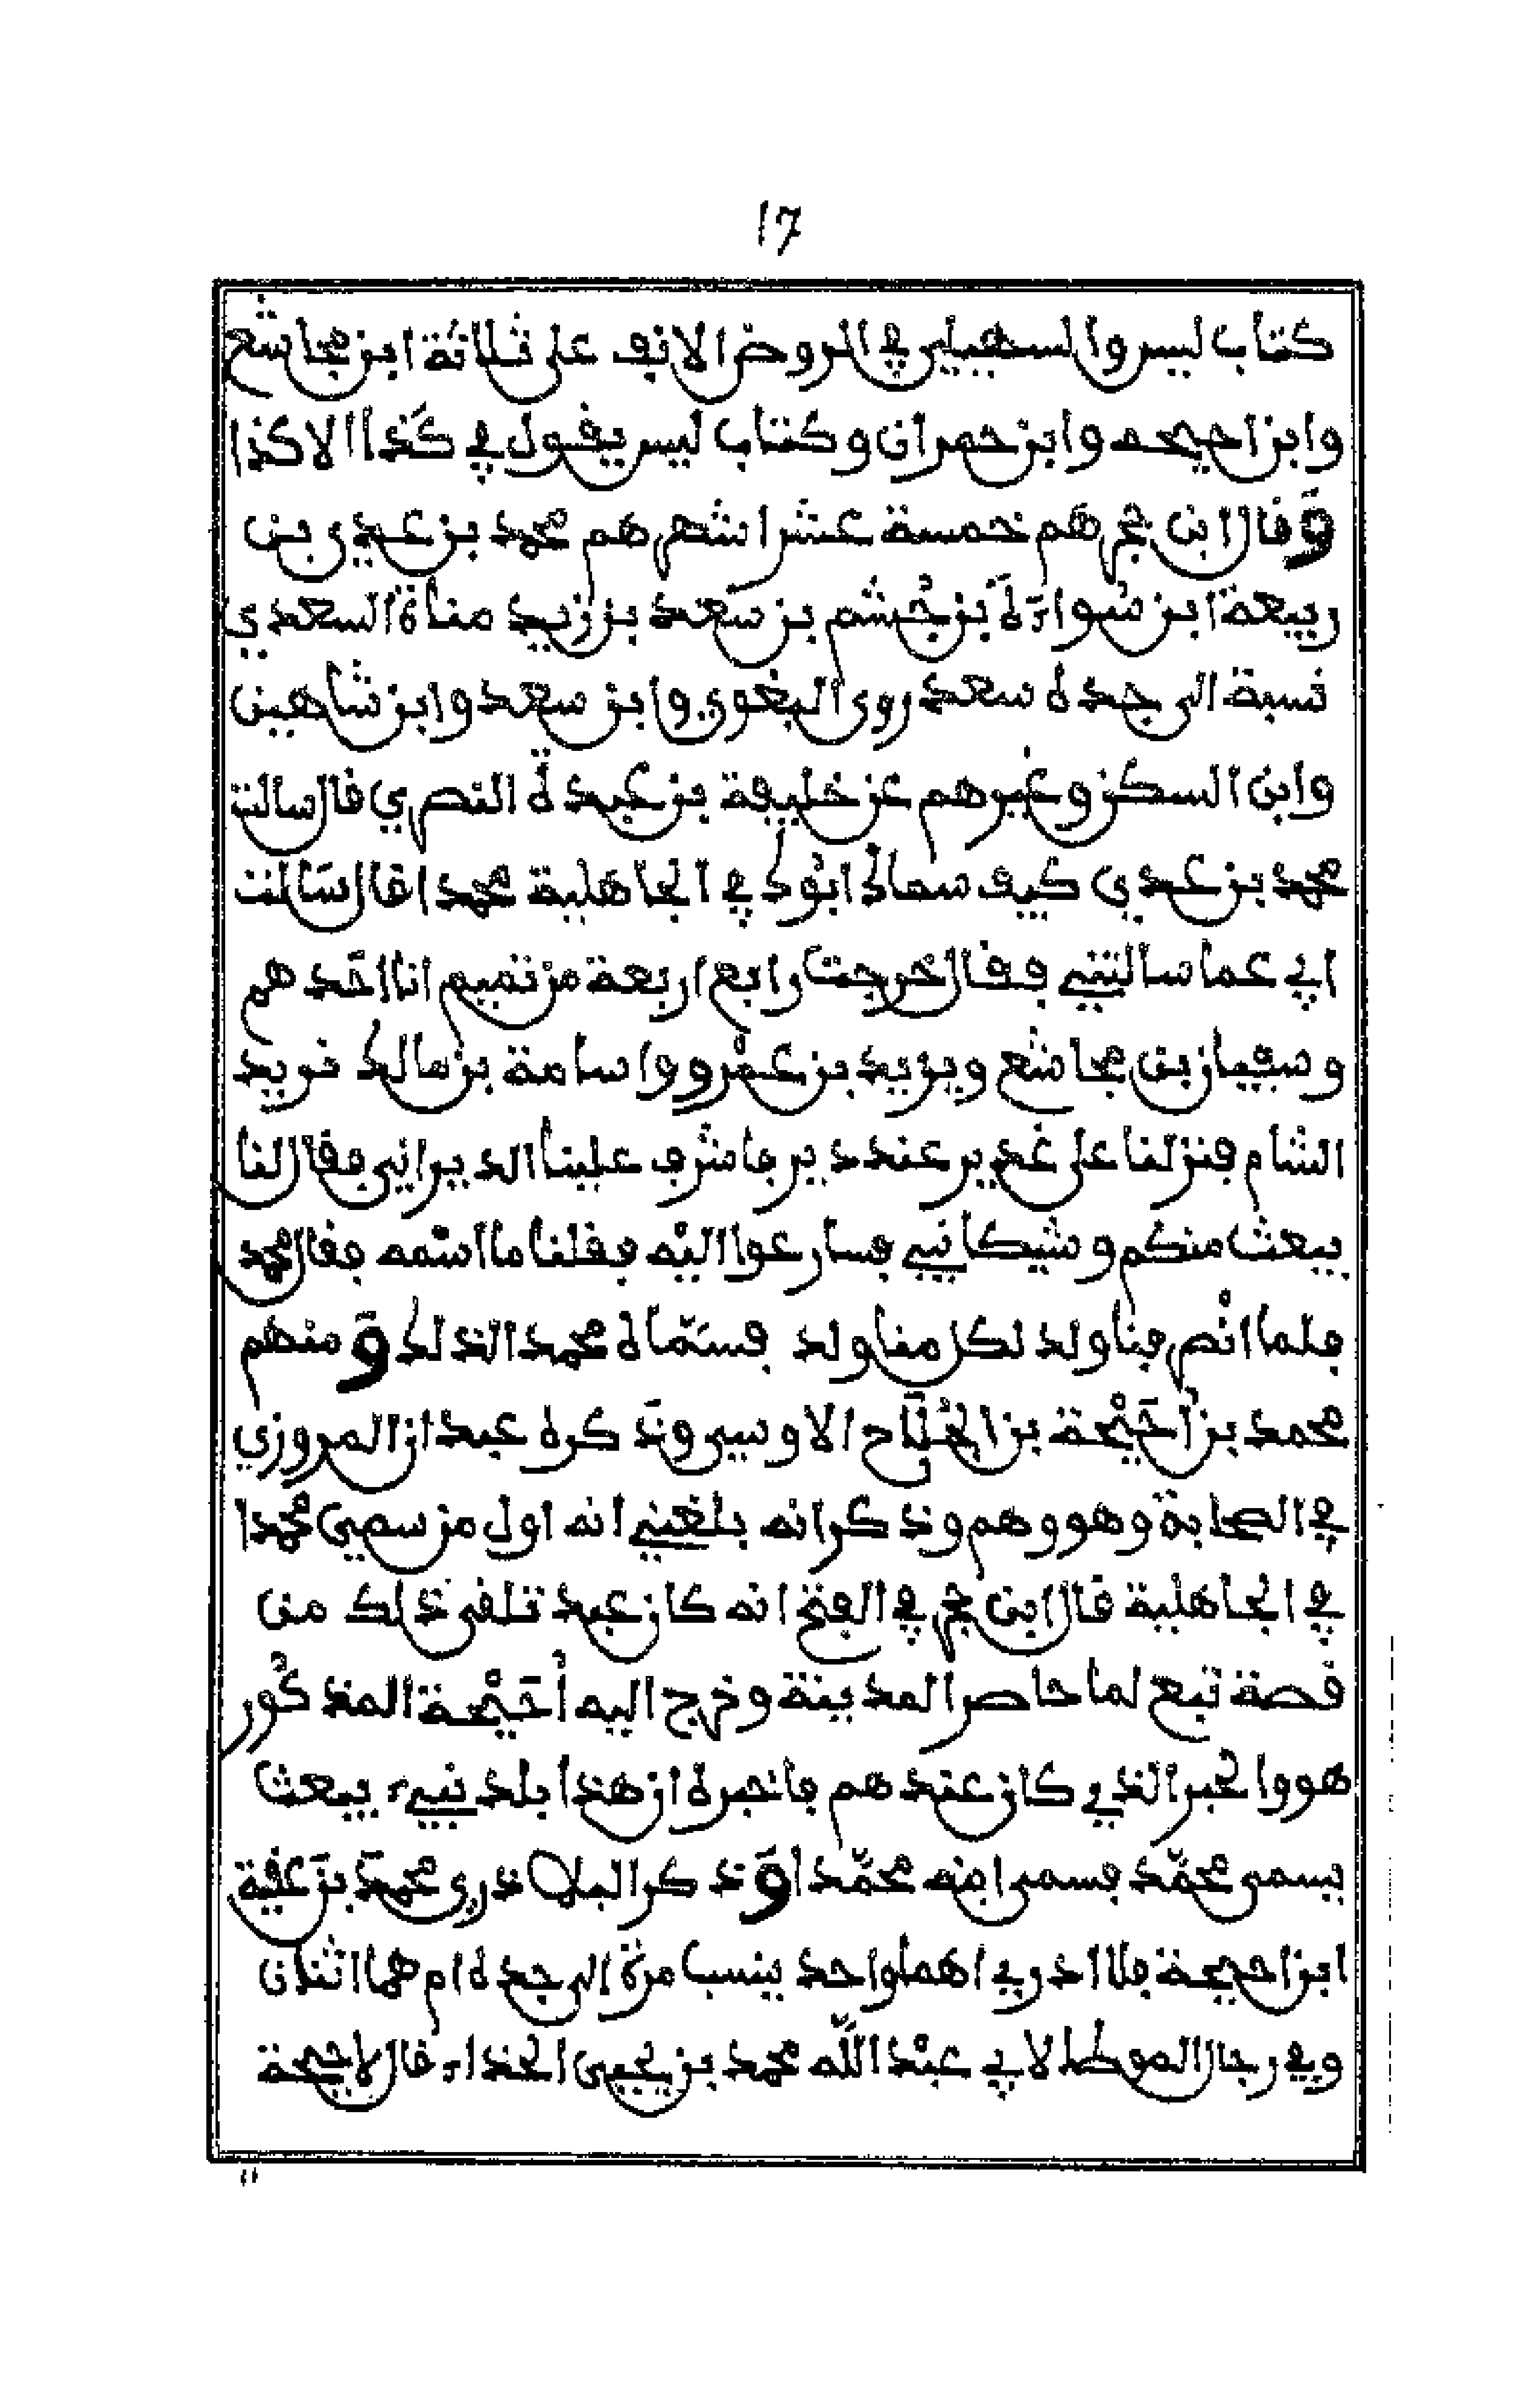 17
كتاب ليس والسهيلي في الروض الانف على ثلاثة ابن مجاشع
وابن احيحه وابن حمران وكتاب ليس يقول في كذا الا كذا
وقال ابن حجر هم خمسة عشر اشهرهم محمد بن عدي بن
ربيعة ابن سواءة بن جُشم بن سعد بن زيد مناة السعدي
نسبة الى جده سعد روى البغوي وابن سعد وابن شاهين
وابن السكن وغيرهم عن خليفة بن عبدة النصري قال سالت
محمد بن عدي كيف سماك ابوك في الجاهلية محمدا قال سالت
ابي عما سالتني فقال خرجت رابع اربعة من تميم انا احدهم
وسفيان بن مجاشع ويزيد بن عمرو واسامة بن مالك نريد
الشام فنزلنا على غدير عند دير فاشرف علينا الديراني فقال لنا
يبعث منكم وشيكا نبي فسارعوا اليه فقلنا ما اسمه فقال محمد
فلما انصرفنا ولد لكل منا ولد فسماه محمد الذلك ومنهم
محمد بن أُحَيْحة بن الجُلَاح الاوسي وذكره عبدان المروزي
في الصحابة وهو وهم وذكر انه بلغني انه اول من سمي محمدا
في الجاهلية قال ابن حجر في الفتح انه كان عبد تلقى ذلك من
قصة تبع لما حاصر المدينة وخرج اليه أُحَيْحة المذكور
هو والحبر الذي كان عندهم فاخبره ان هذا بلد نبيء يبعث
يسمى محمّد فسمى ابنه محمّدا وذكر البلاذري محمد بن عقبة
ابن احيحة فلا ادري اهما واحد ينسب مرة الى جده ام هما اثنان
وفي رجال الموطا لابي عبد الله محمد بن يحيى الحذاء قال لاحيحة